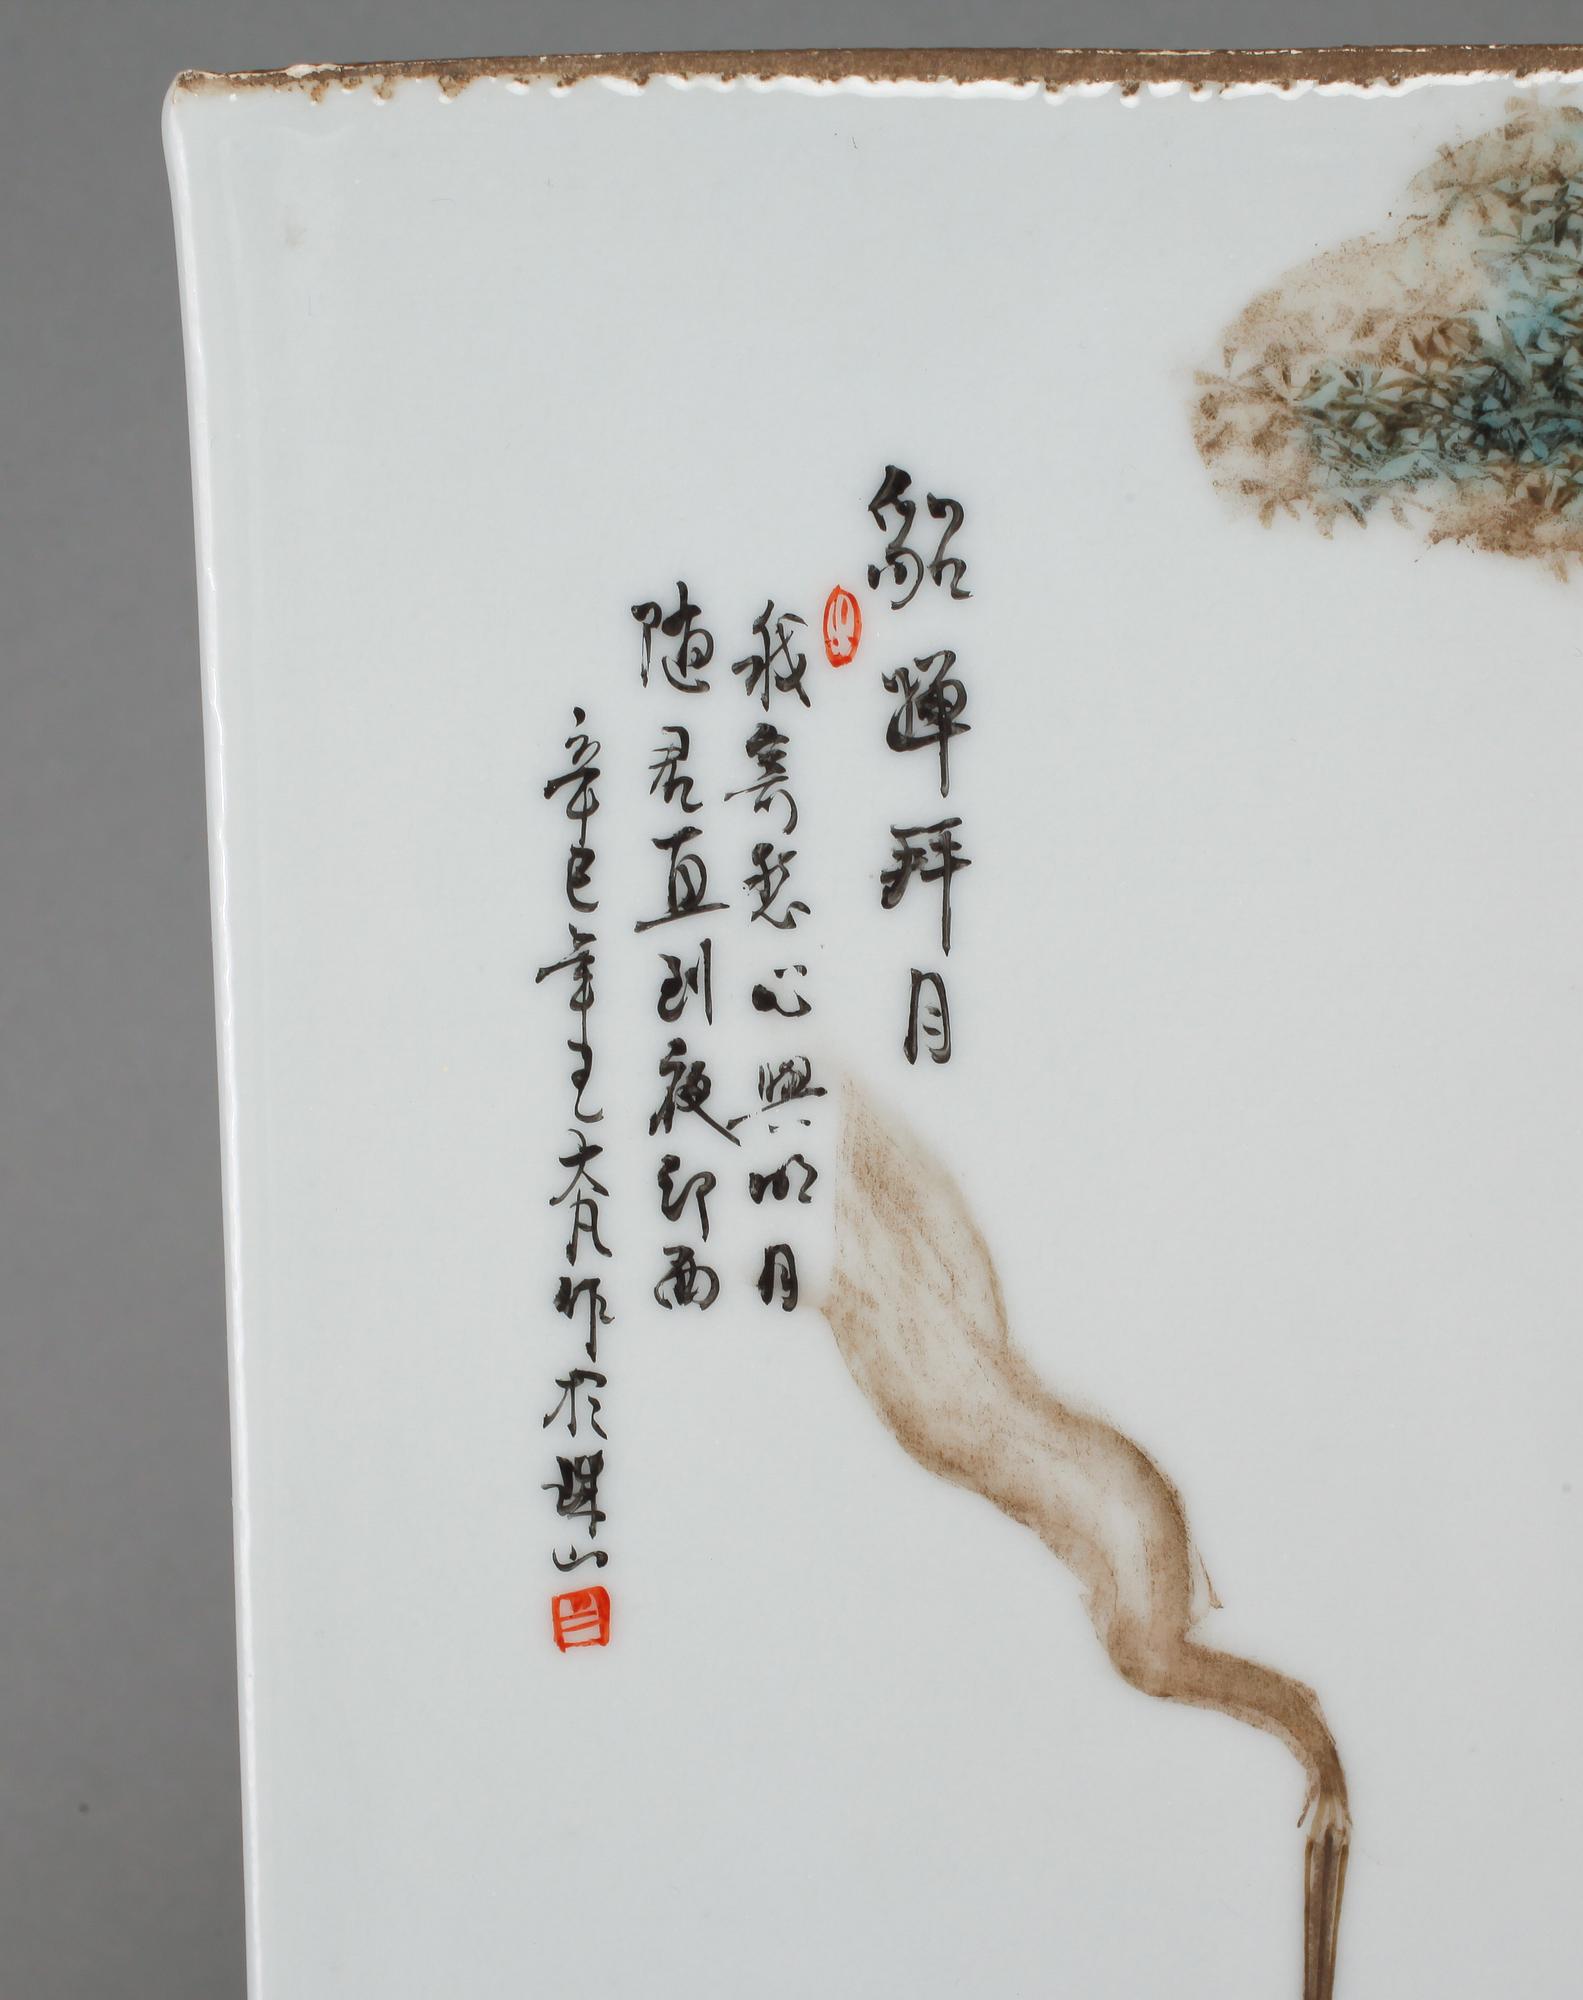 貂蟬拜月
我寄愁心與明月
随君直到夜郎西
辛巳年王大凡作於珠山